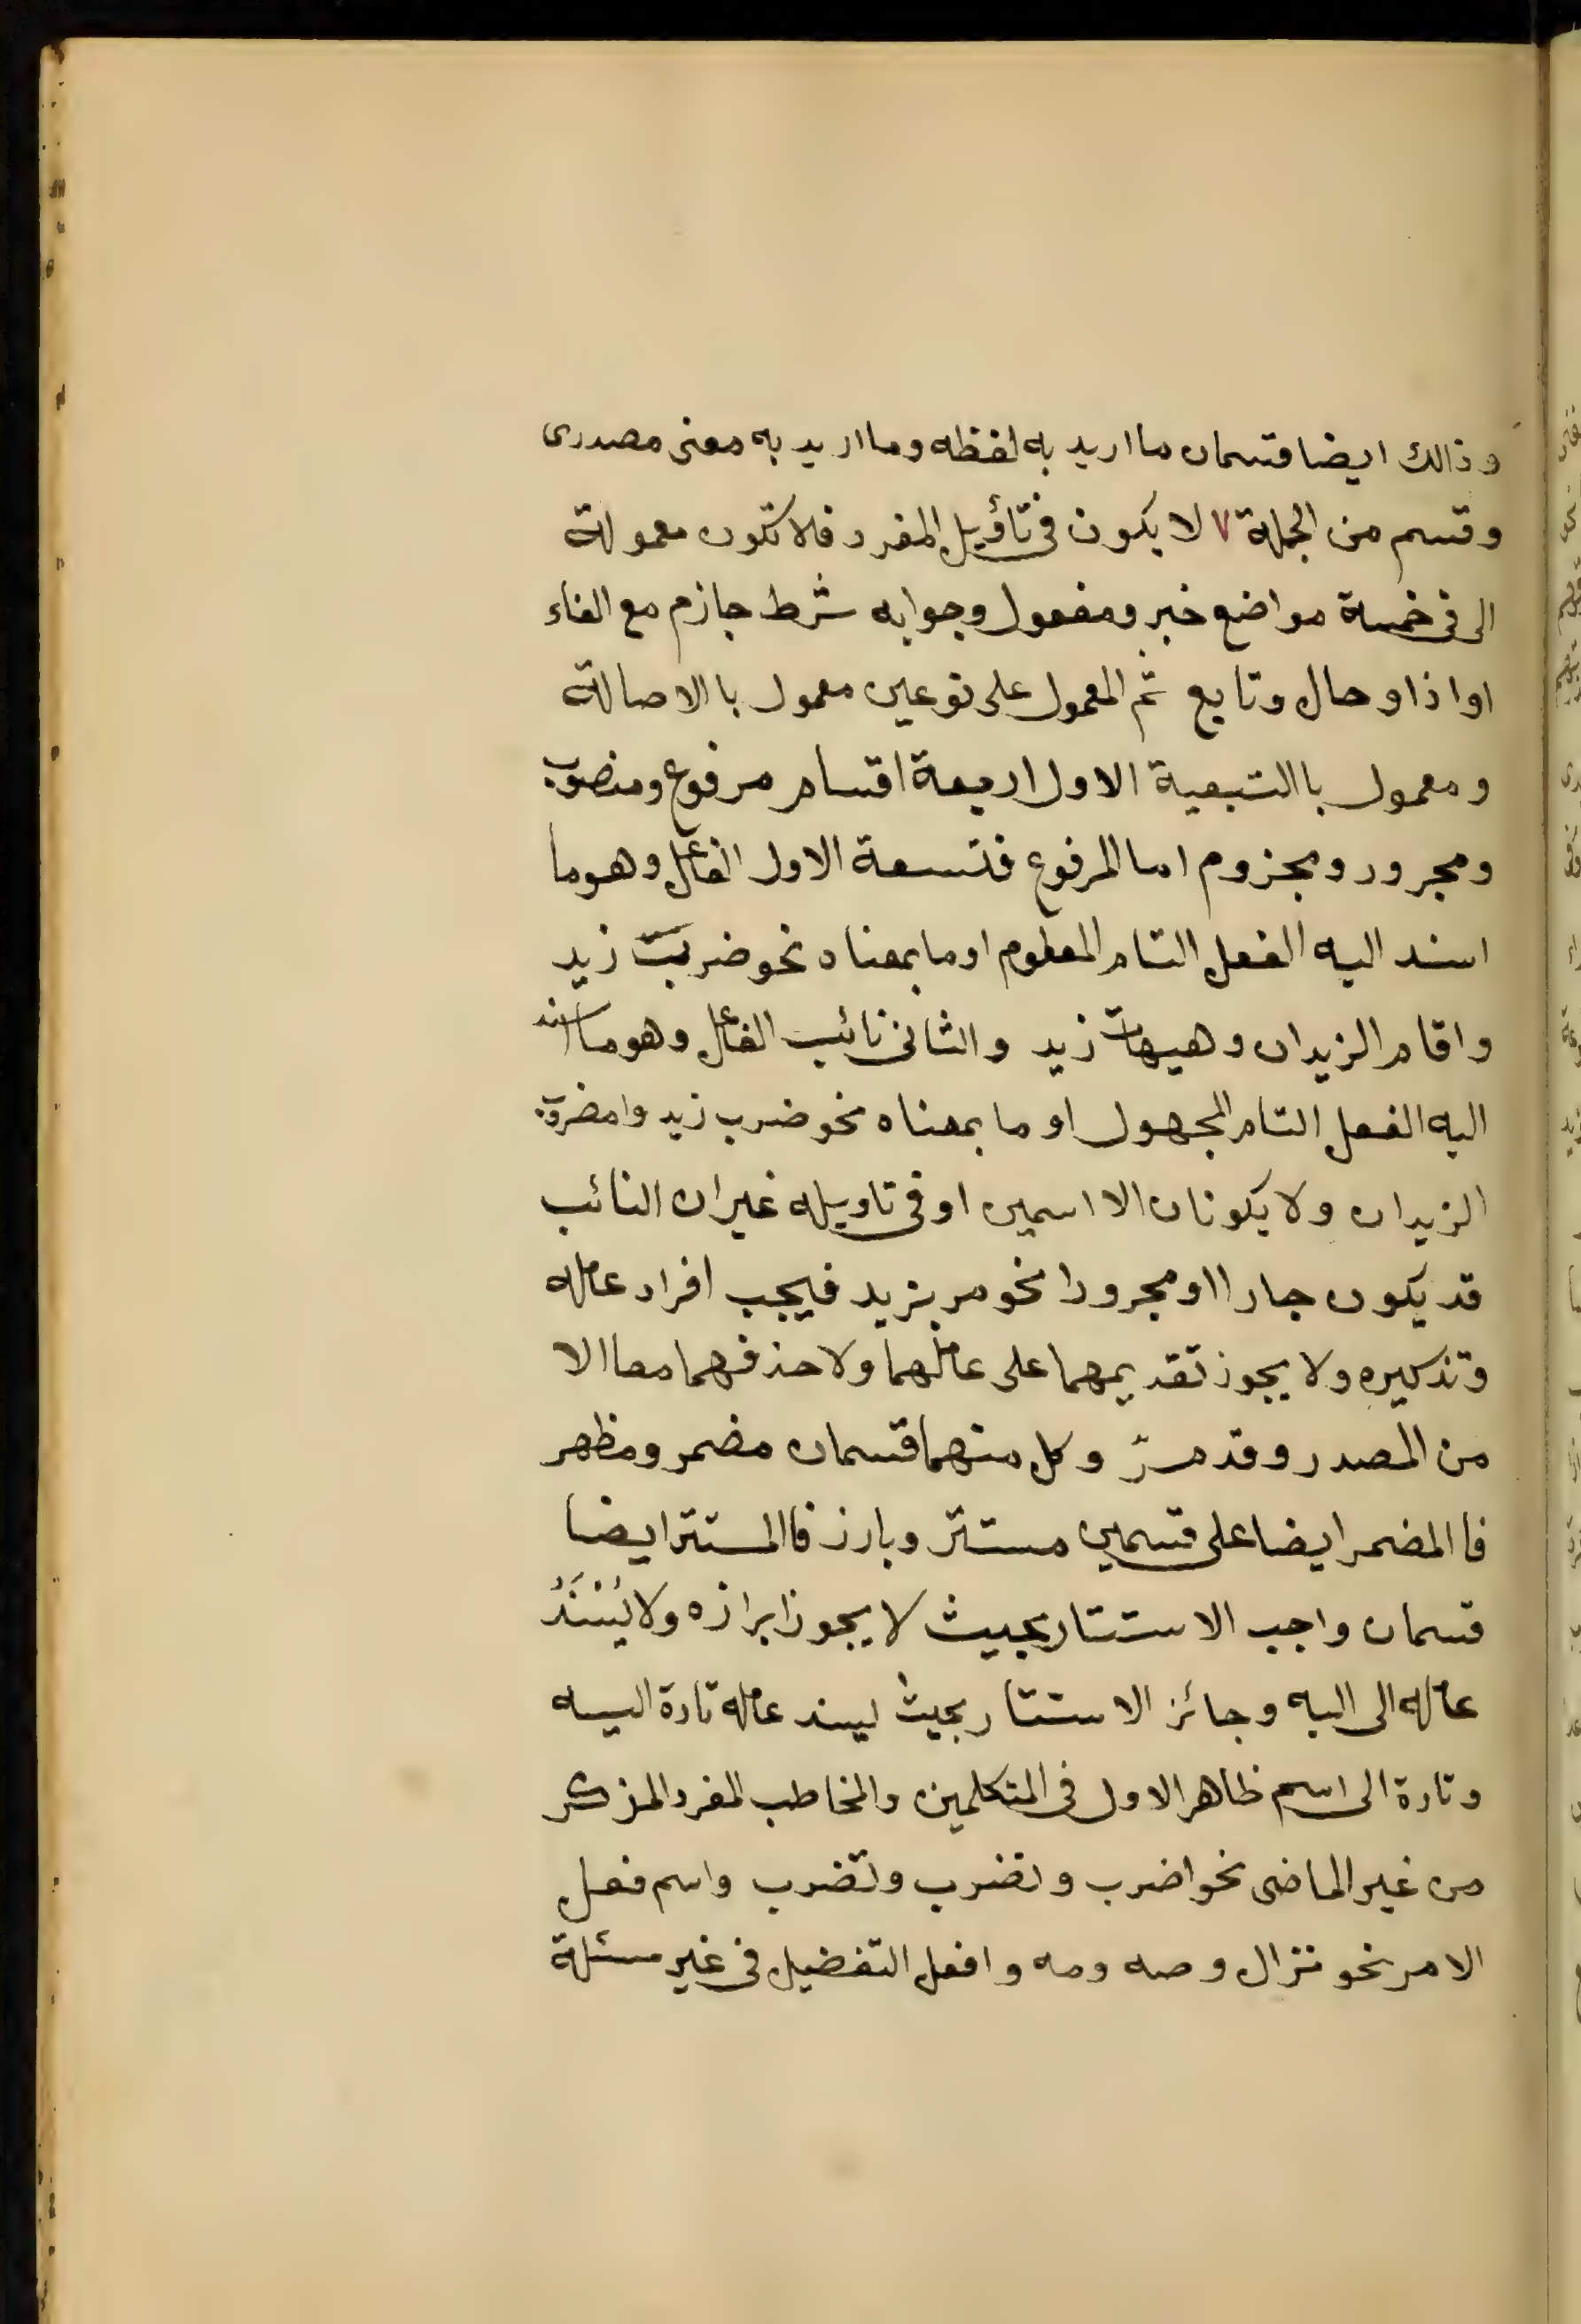 وذالك ايضا قسمان ما اريد به لفظه وما اريد به معنى مصدرى
وقسم من الجملة ٧ لا يكون فى تأويل المفرد فلا تكون معمولة
الى فى خمسة مواضع خبر ومفعول وجوابه شرط جازم مع الفاء
او اذا وحال وتابع ثم المعمول على نوعين معمول باالاصالة
ومعمول باالتبعية الاول اربعة اقسام مرفوع ومنصوب
ومجرور ومجزوم اما المرفوع فتسعة الاول الفاعل وهو ما
اسند اليه الفعل التام المعلوم او ما بمعناه نحو ضربت زيد
واقام الزيدان وهيهات زيد والثانى نائب الفاعل وهو ما اسند
اليه الفعل التام المجهول او ما بمعناه نحو ضرب زيد وامضروب
الزيدان ولا يكونان الا اسمين او فى تاويله غير ان النائب
قد يكون جارا او مجرورا نحو مر بزيد فيجب افراد عامله
وتذكيره ولا يجوز تقديمهما على عاملهما ولا حذفهما معا الا
من المصدر وقد مرّ وكل منهما قسمان مضمر ومظهر
فا المضمر ايضا على قسمين مستتر وبارز فا المستتر ايضا
قسمان واجب الاستتار بحيث لا يجوز ابرازه ولا يُسْنَدُ
عامله الى اليه وجائز الاستتار بحيث ليسند عامله تارة اليه
وتارة الى اسم ظاهر الاول فى المتكلمين والمخاطب المفرد المذكر
من غير الماضى نحو اضرب ونضرب وتضرب واسم فعل
الامر نحو نزال وصه ومه وافعل التفضيل فى غير مسئلة